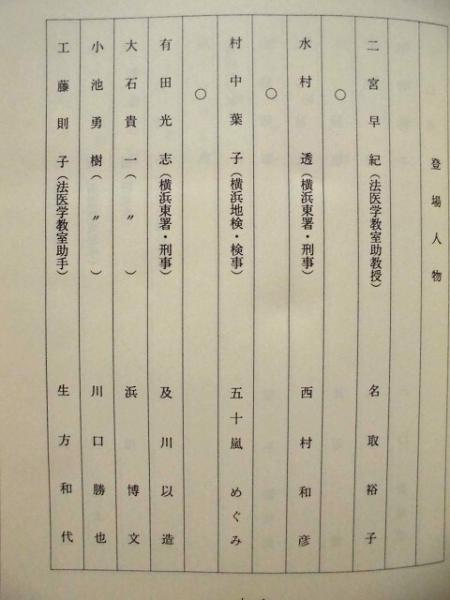 登場人物
二宮早紀（法医学教室助教授）　名取裕子
○
水村　透（横浜東署・刑事）　西村和彦
○
村中葉子（横浜地検・検事）　五十嵐めぐみ
○
有田光志（横浜東署・刑事）　及川以造
大石貴一（　〃　）　浜　博文
小池勇樹（　〃　）　川口勝也
工藤則子（法医学教室助手）　生方和代